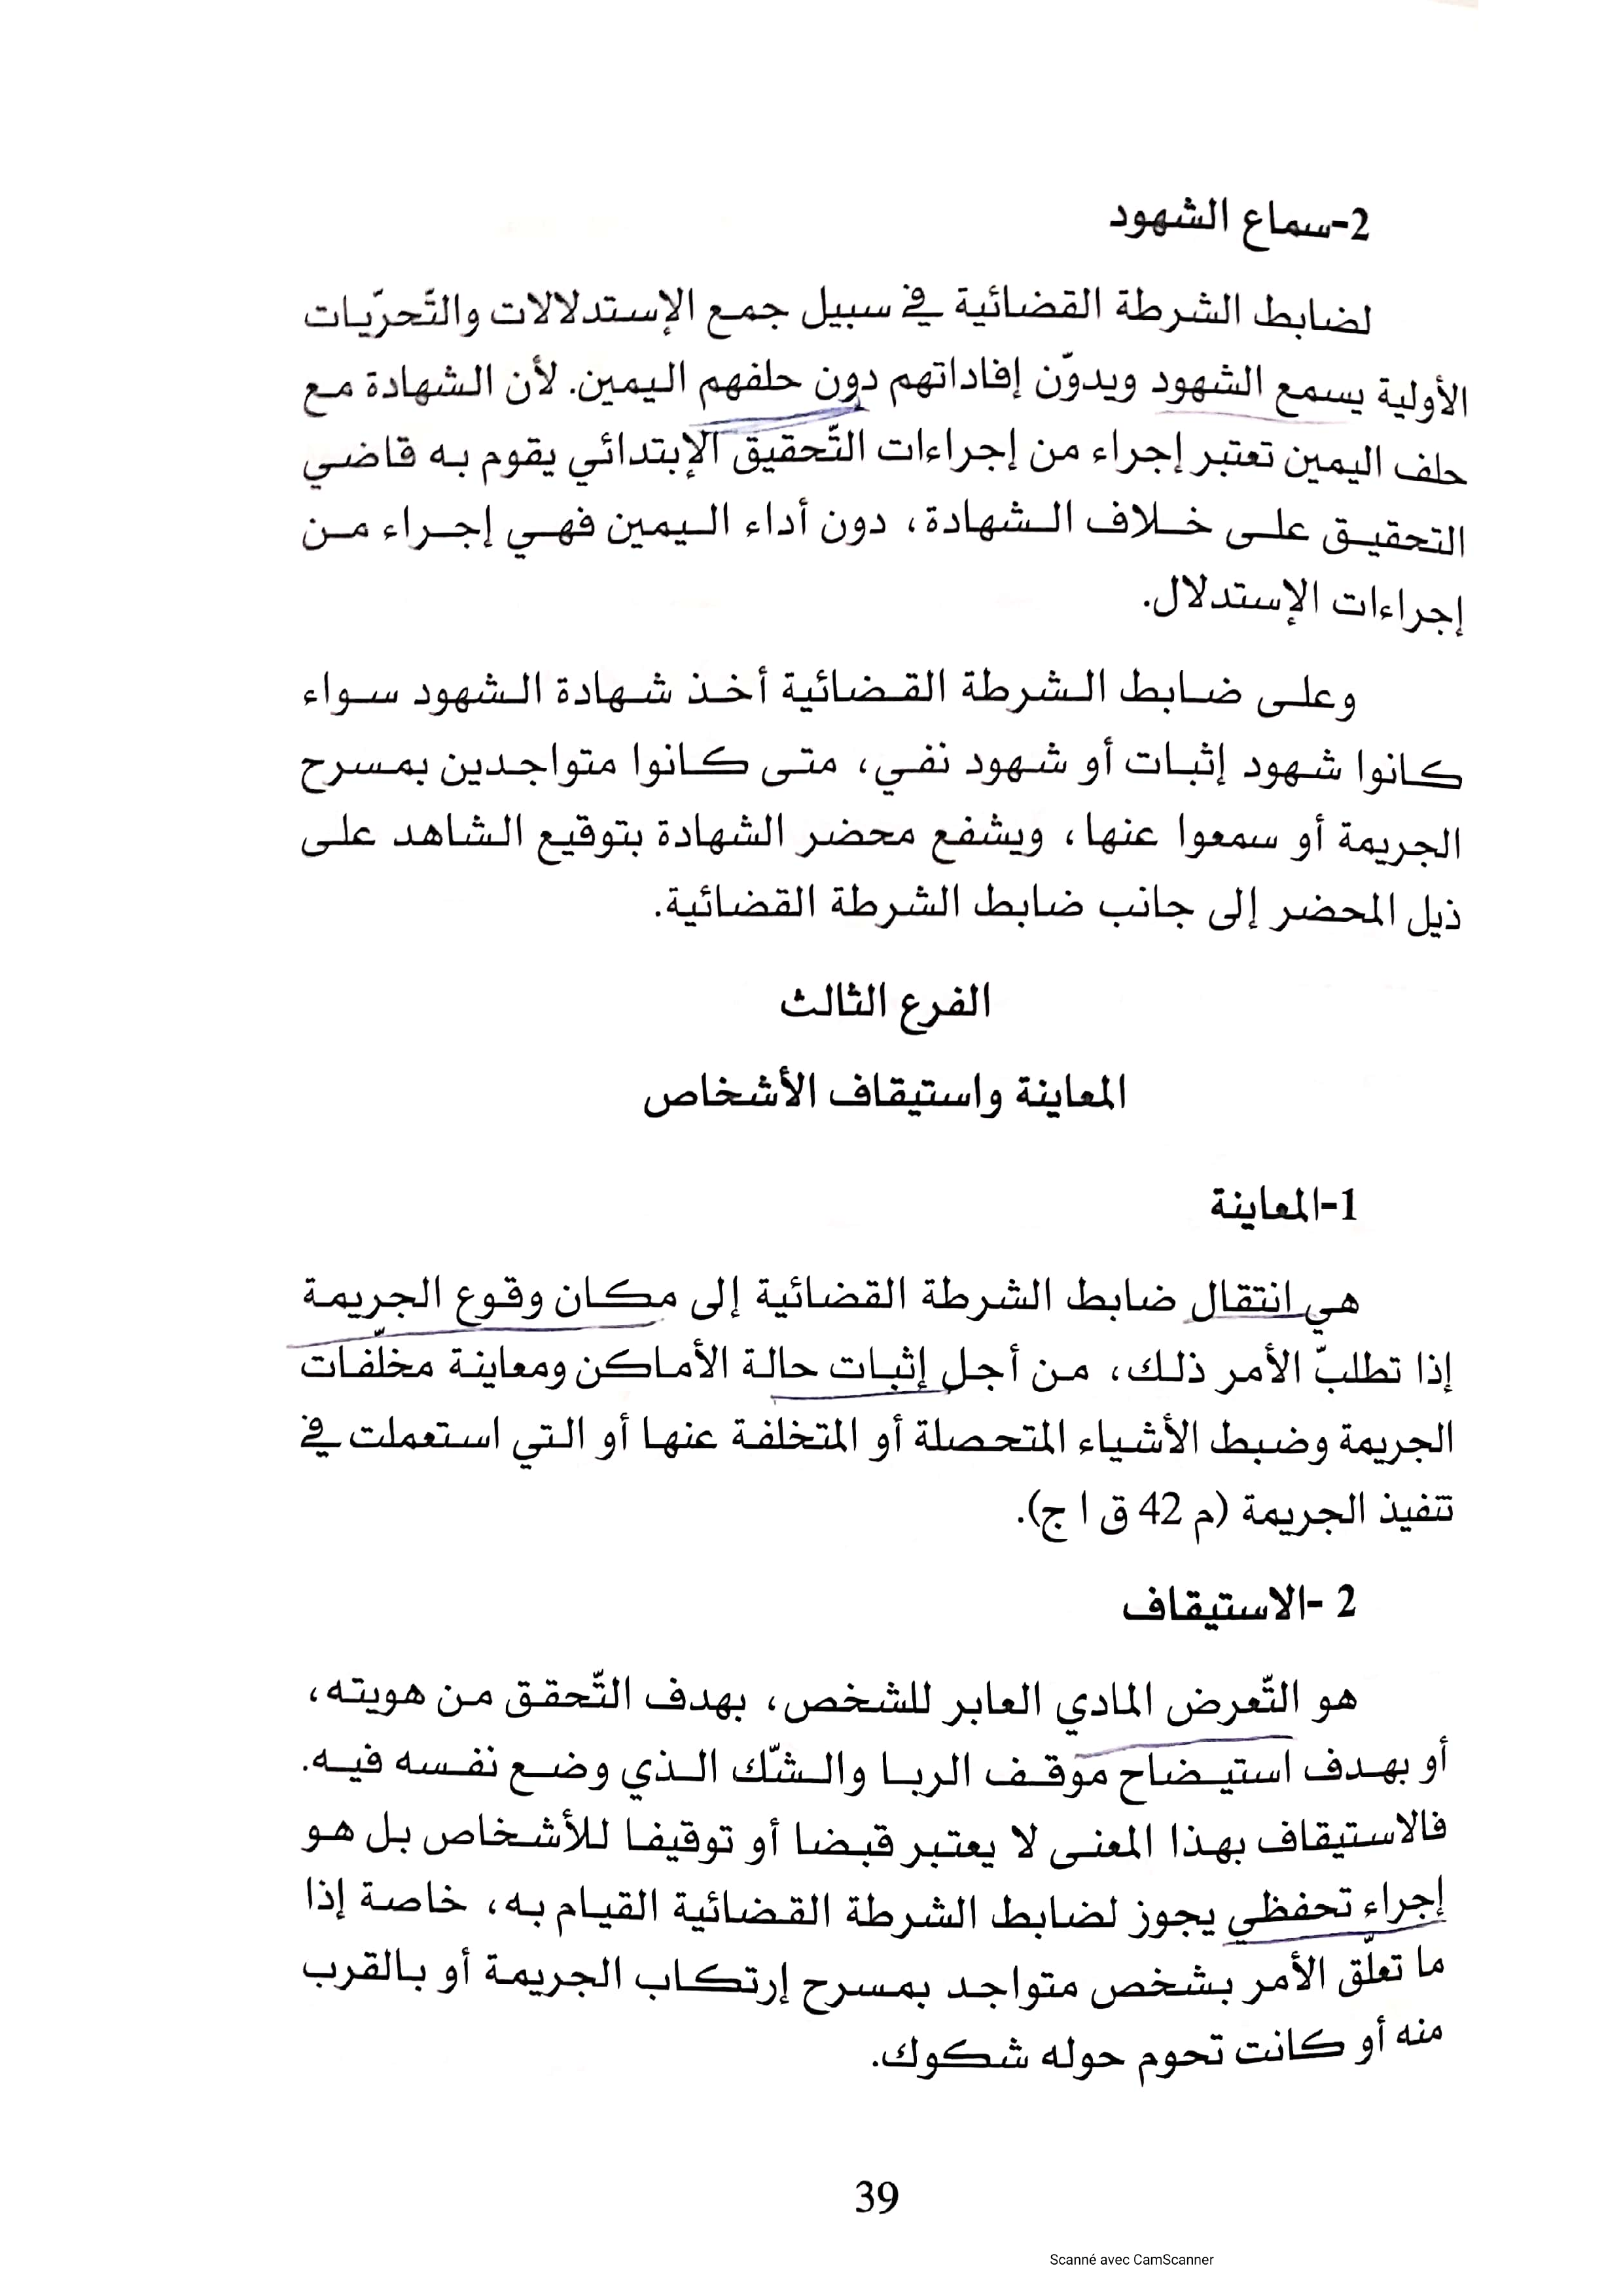 2-سماع الشهود
لضابط الشرطة القضائية في سبيل جمع الإستدلالات والتّحرّيات
الأولية يسمع الشهود ويدوّن إفاداتهم دون حلفهم اليمين. لأن الشهادة مع
حلف اليمين تعتبر إجراء من إجراءات التّحقيق الإبتدائي يقوم به قاضي
التحقيق على خلاف الشهادة، دون أداء اليمين فهي إجراء من
إجراءات الإستدلال.
وعلى ضابط الشرطة القضائية أخذ شهادة الشهود سواء
كانوا شهود إثبات أو شهود نفي، متى كانوا متواجدين بمسرح
الجريمة أو سمعوا عنها، ويشفع محضر الشهادة بتوقيع الشاهد على
ذيل المحضر إلى جانب ضابط الشرطة القضائية.
الفرع الثالث
المعاينة واستيقاف الأشخاص
1-المعاينة
هي انتقال ضابط الشرطة القضائية إلى مكان وقوع الجريمة
إذا تطلبّ الأمر ذلك، من أجل إثبات حالة الأماكن ومعاينة مخلّفات
الجريمة وضبط الأشياء المتحصلة أو المتخلفة عنها أو التي استعملت في
تنفيذ الجريمة (م 42 ق ا ج).
2 -الاستيقاف
هو التّعرض المادي العابر للشخص، بهدف التّحقق من هويته،
أو بهدف استيضاح موقف الربا والشّك الذي وضع نفسه فيه.
فالاستيقاف بهذا المعنى لا يعتبر قبضا أو توقيفا للأشخاص بل هو
إجراء تحفظي يجوز لضابط الشرطة القضائية القيام به، خاصة إذا
ما تعلّق الأمر بشخص متواجد بمسرح إرتكاب الجريمة أو بالقرب
منه أو كانت تحوم حوله شكوك.
39
Scanné avec CamScanner